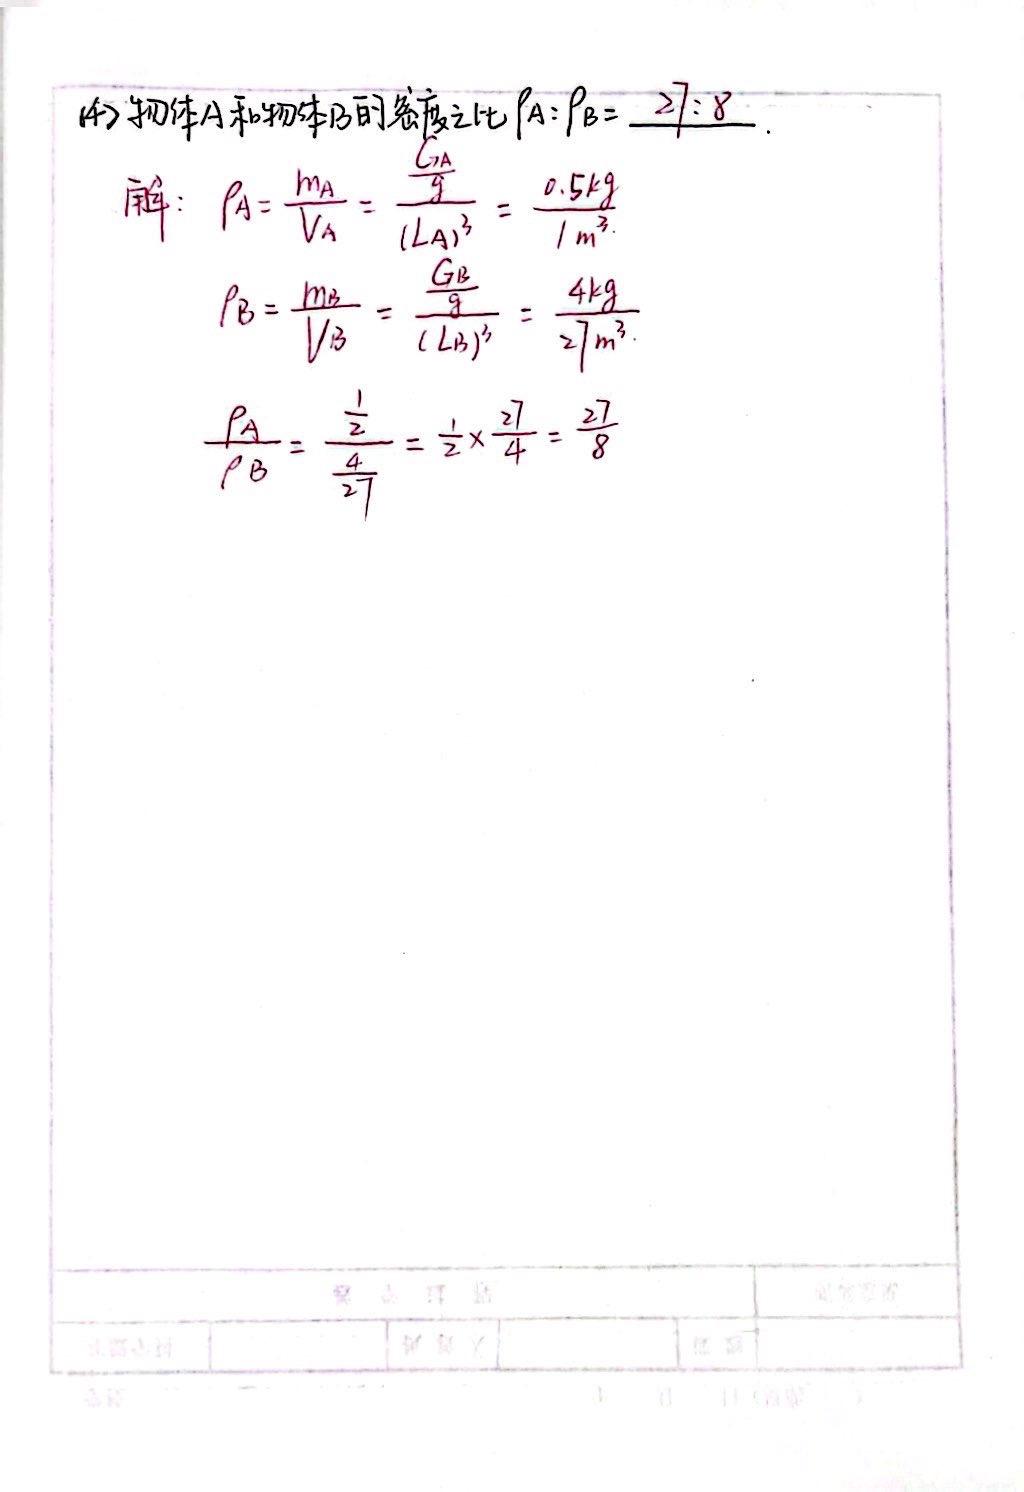 (4) 物体A和物体B的密度之比 ρA:ρB = 27:8 .
解: ρA = mA/VA = (GA/g)/(LA)³ = 0.5kg/1m³.
ρB = mB/VB = (GB/g)/(LB)³ = 4kg/27m³.
ρA/ρB = (1/2)/(4/27) = 1/2 × 27/4 = 27/8